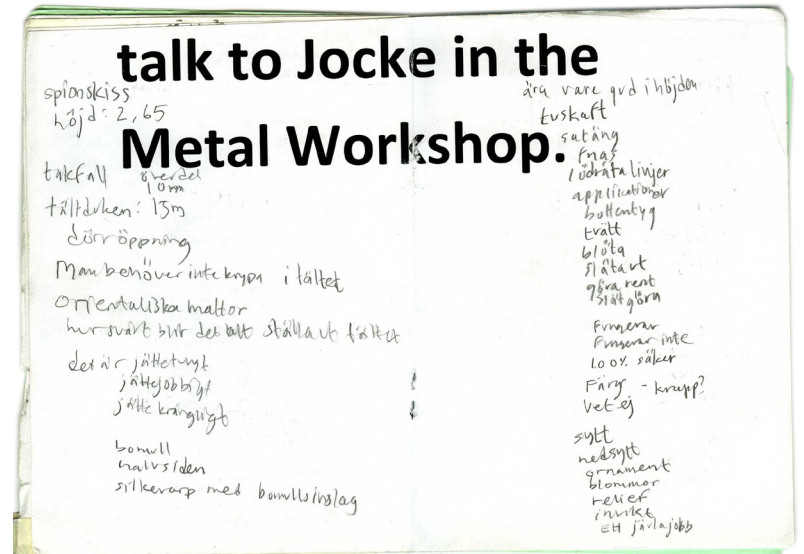 talk to Jocke in the
Metal Workshop.
spionskiss
höjd: 2,65
takfall överdel
10m
tältduken: 13m
dörröppning
Man behöver inte krypa i tältet
orientaliska mattor
hur svårt blir det att ställa ut tältet
det är jättetungt
jättejobbigt
jättekrångligt
bomull
halvsiden
silkevarp med bomullsinslag
ära vare gud i höjden
tuskaft
satäng
fnas
lodräta linjer
applikationer
bottentyg
tvätt
blöta
släta ut
göra rent
slätgöra
Fungerar
Fungerar inte
100% säker
Färg - krapp?
vet ej
sytt
nedsytt
ornament
blommor
relief
invikt
Ett jävla jobb